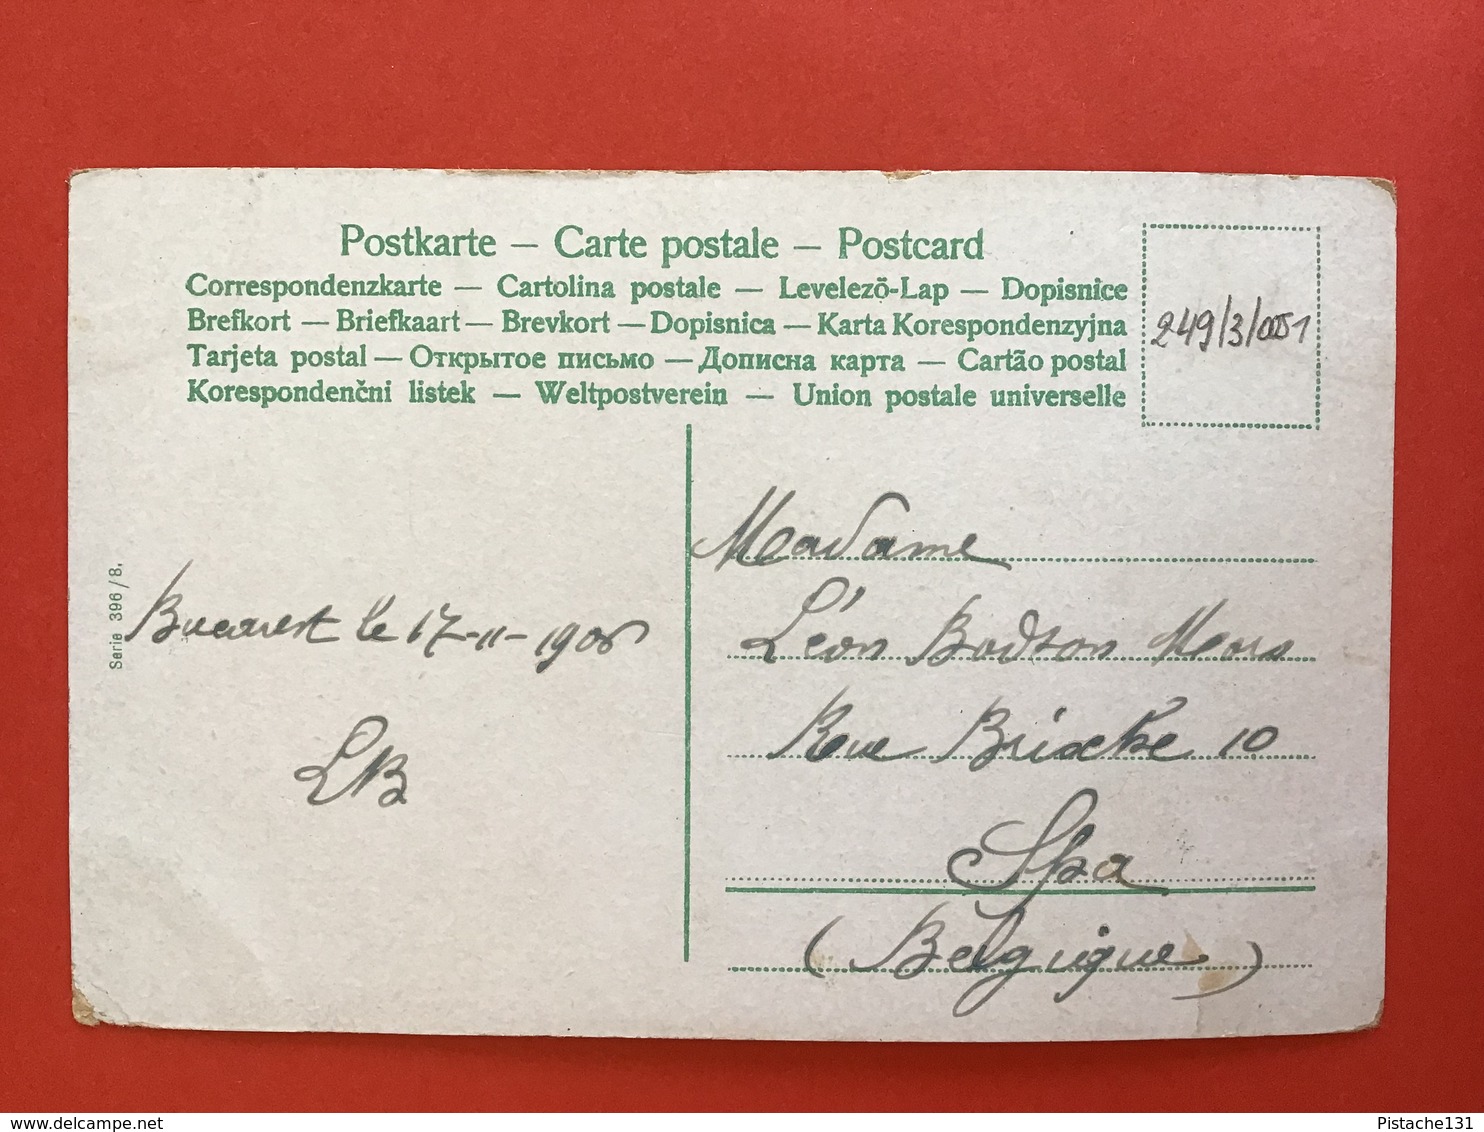 Postkarte — Carte postale — Postcard
Correspondenzkarte — Cartolina postale — Levelező-Lap — Dopisnice
Brefkort — Briefkaart — Brevkort — Dopisnica — Karta Korespondenzyjna
Tarjeta postal — Открытое письмо — Дописна карта — Cartão postal
Korespondenčni listek — Weltpostverein — Union postale universelle
249/3/001
Serie 396/8.
Bucarest le 17-11-1906
LB
Madame
Léon Bodson Mors
Rue Brixhe 10
Spa
(Belgique)
delcampe.net
Pistache131